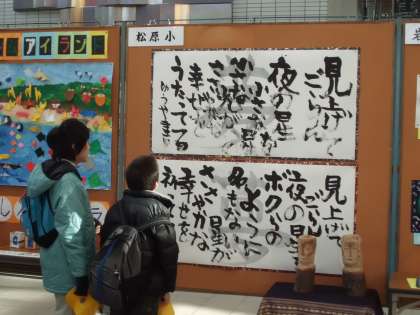 アイランド
松原小
見上げて
ごらん
夜の星を
小さな
星の
小さな
光が
ささやかな
幸せを
うたってる
見上げて
ごらん
夜の星を
ボクらの
ように
名もない
星が
ささやかな
幸せを
祈ってる